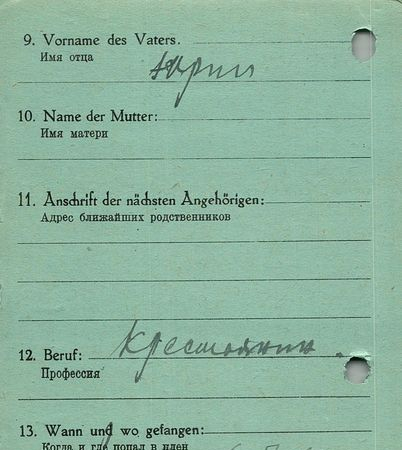 9. Vorname des Vaters.
Имя отца
10. Name der Mutter:
Имя матери
11. Anschrift der nächsten Angehörigen:
Адрес ближайших родственников
12. Beruf: Крестьянин.
Профессия
13. Wann und wo gefangen:
Когда и где попал в плен